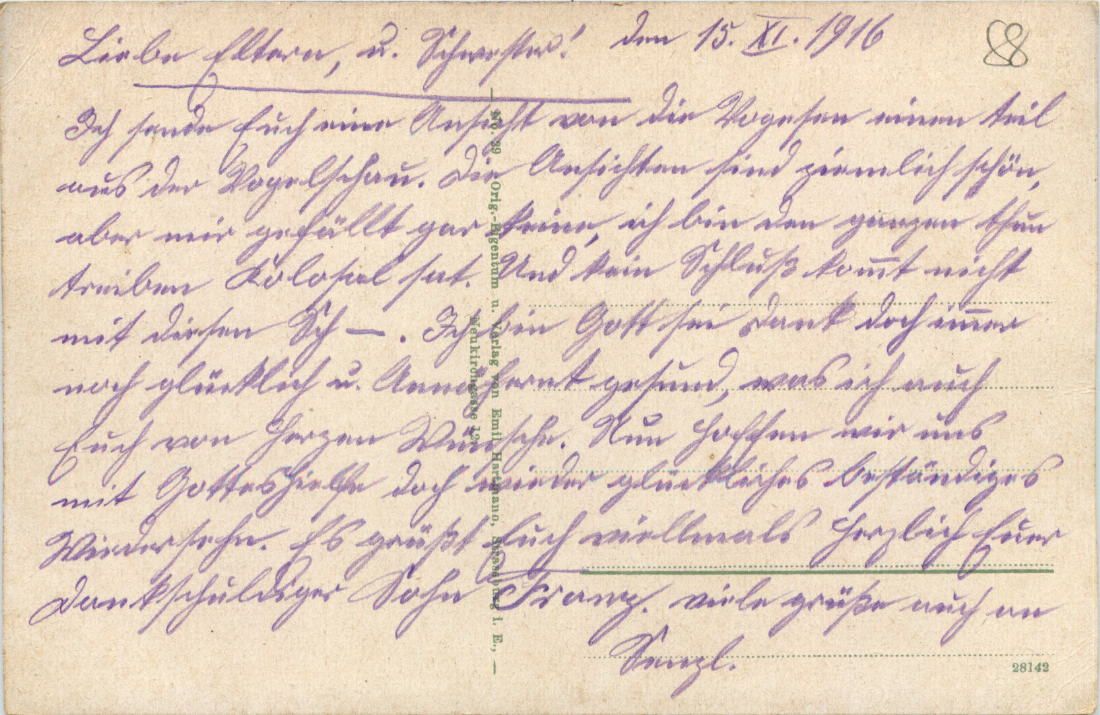 Liebe Eltern, u. Schwester! den 15. XI. 1916
Ich sende Euch eine Ansicht von die Vogesen einen teil
aus der Vogelschau. Die Ansichten sind ziemlich schön,
aber mir gefällt gar keine, ich bin den ganzen
treiben Kolosal sat. Und kein Schluß kom̅t nicht
mit diesen Sch—. Ich bin Gott sei Dank doch im̅er
noch glücklich u. Annähernt gesund, was ich auch
Euch von Herzen Wünsche. Nun Hoffen wir uns
mit Gotteshielfe doch wieder glückliches beständiges
Wiedersehn. Es grüßt Euch viellmals Herzlich Euer
Dankschuldiger Sohn Franz. viele grüße auch an
Senzl.
No. 39 Orig.-Eigentum u. Verlag von Emil Hartmann, Strassburg i. E.,
Neukirchgasse 12
28142